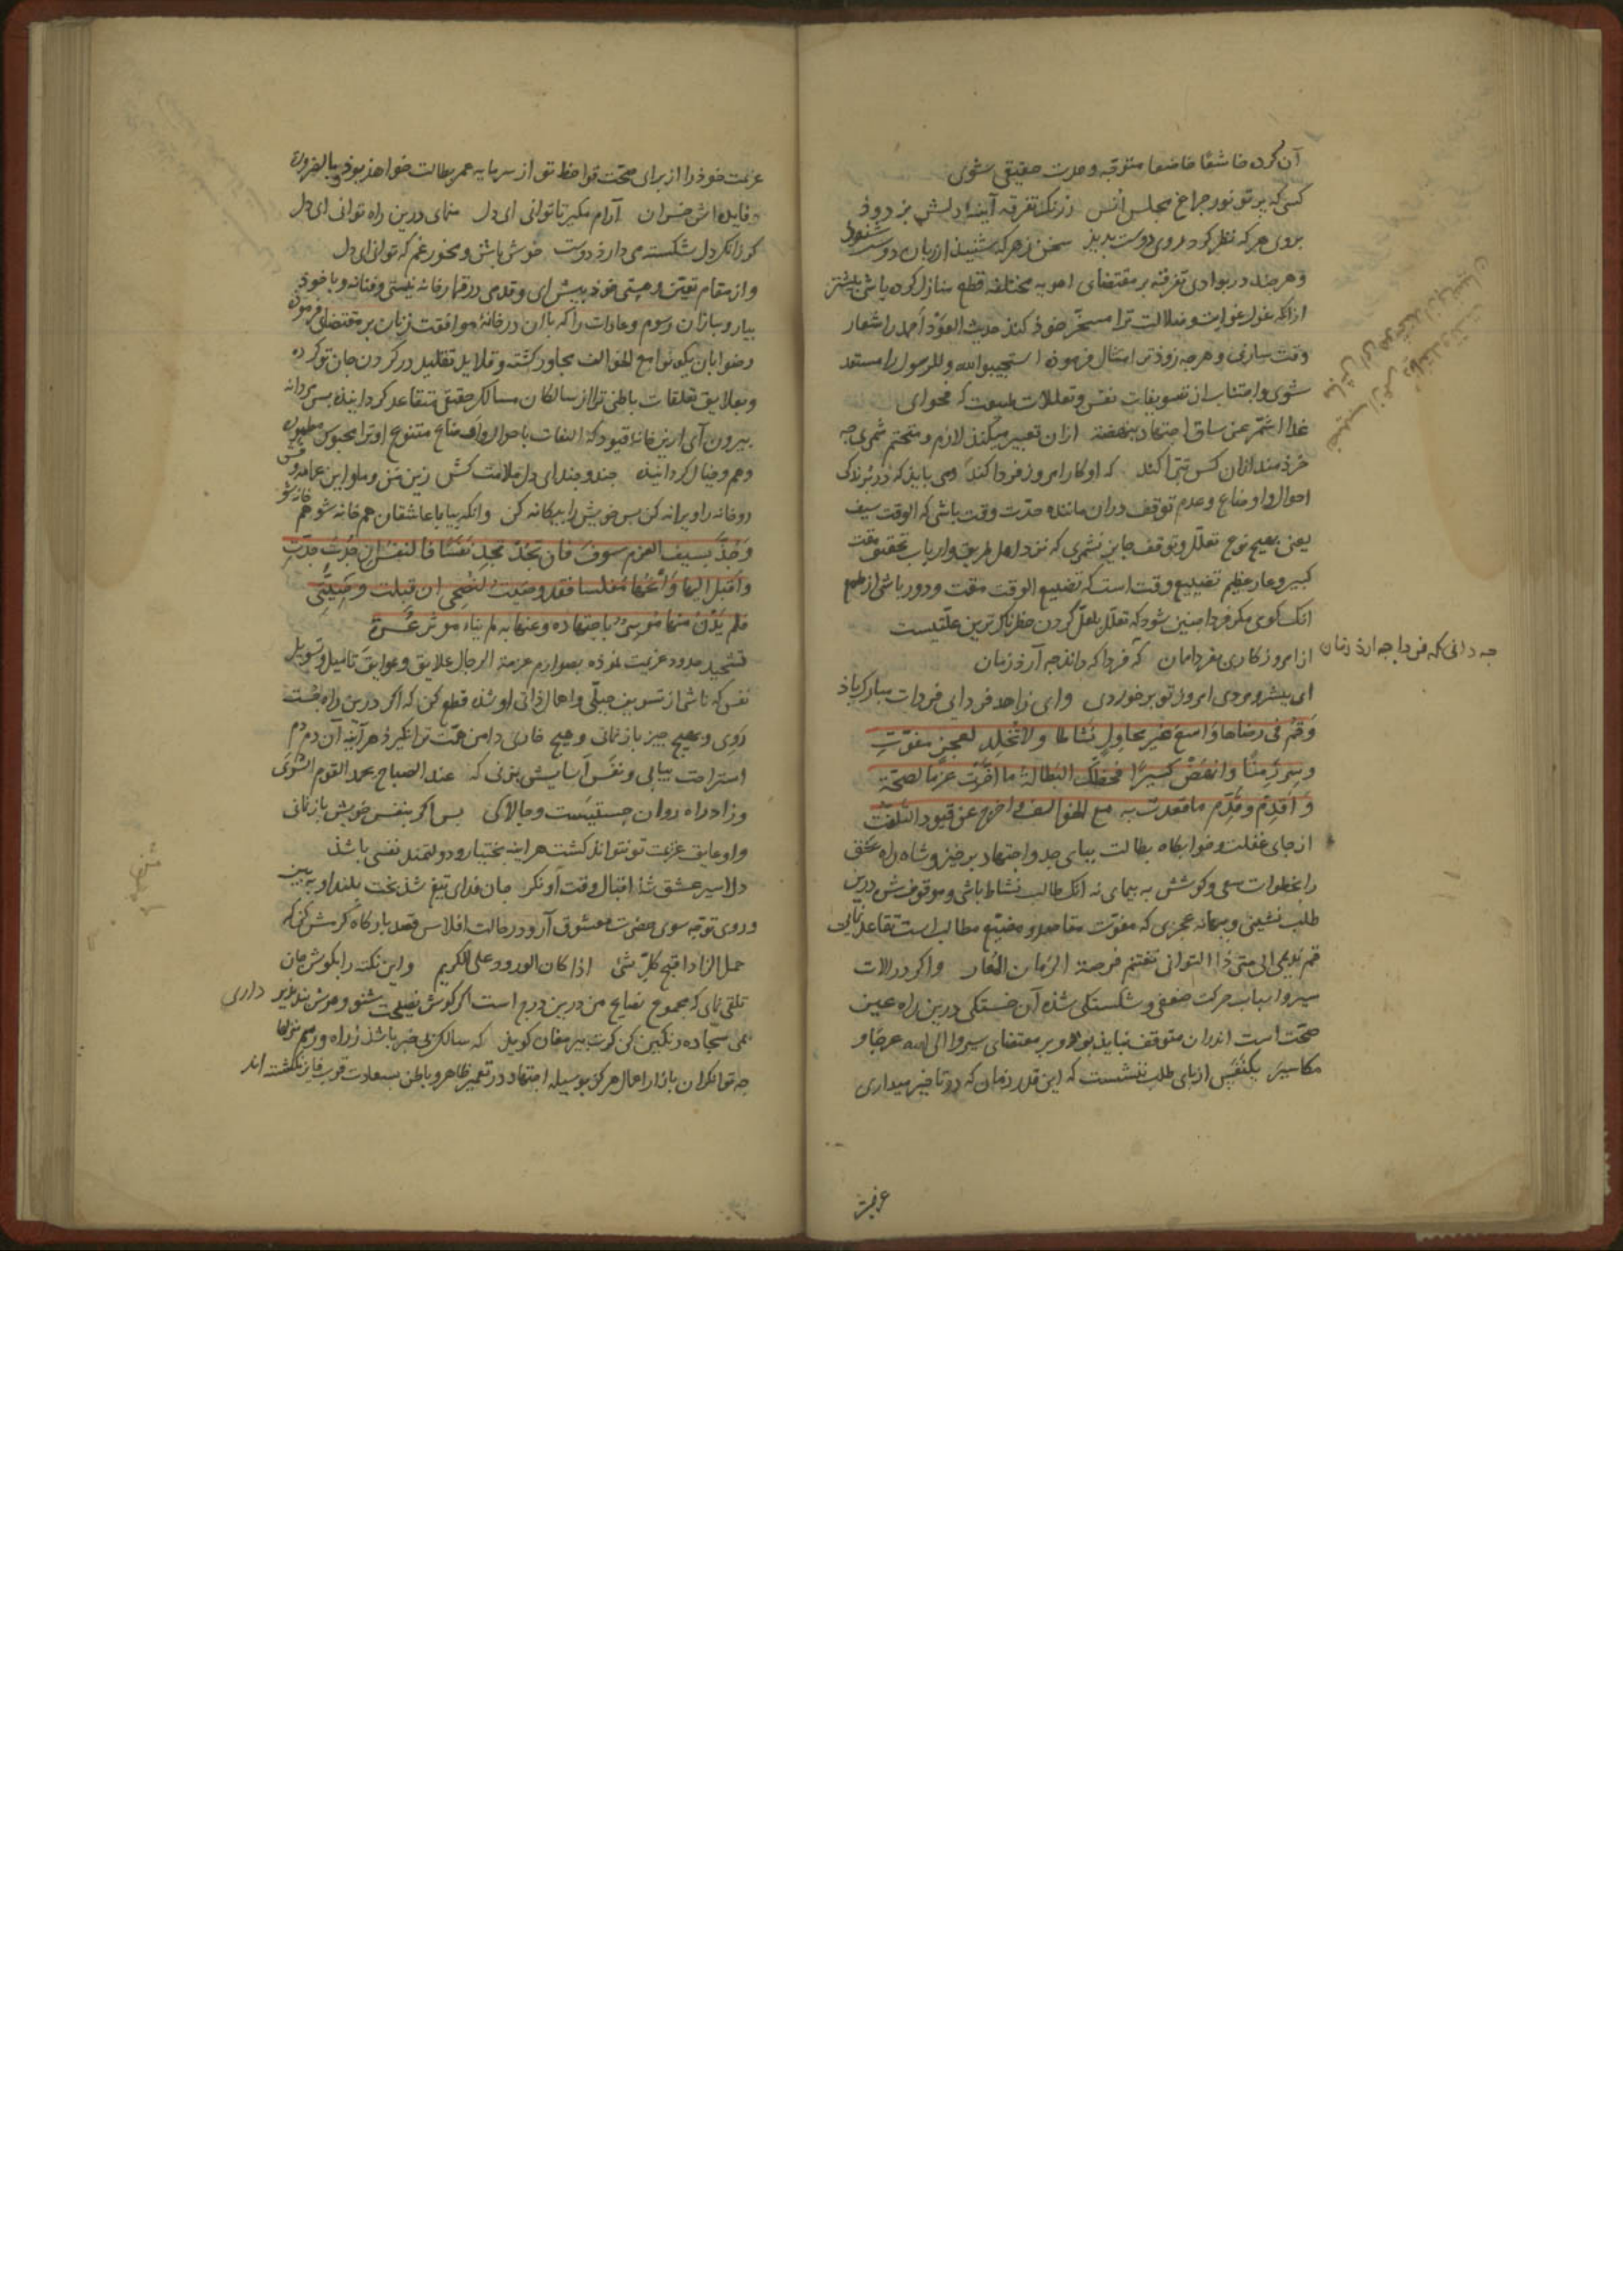 آن گردی خاشعا خاضعا متوجه وحدت حقیقی شوی
کسی که پرتو نور چراغ مجلس انس ز زنک تفرقه آینهٔ دلش بزدود
بروی هر که نظر کرد روی دوست بدید سخن ز هر که شنید از زبان دوست شنود
و هر چند در بوادی تفرقه بر مقتضای اهویه مختلفه قطع منازل کرده باشی بیشتر
ازانکه غول غوایت و ضلالت ترا مسخر خود کند حدیث العود احمد را شعار
وقت سازی و هر چه زودتر امتثال فرموده استجیبوا لله وللرسول را مستعد
شوی و اجتناب از تسویفات نفس و تعللات طبیعت که فحوای
غدا اشمر عن ساق اجتهاد بنهضة ازان تعبیر میکند لازم و متحتم شمری چه
خرد مند ازان کس تبرا کند که او کار امروز فردا کند می باید که در تدارک
احوال و اوضاع و عدم توقف دران ماننده حدت وقت باشی که الوقت سیف
یعنی بهیچ نوع تعلل و توقف جایز نشمری که نزد اهل طریق و ارباب تحقیق مقت
کبیر و عار عظیم تضییع وقت است که تضییع الوقت مقت و دور باشی از طمع
انک کوی مکر فردا چنین شود که تعلل بلعل کردن خطرناک ترین علتیست
از امروز کاری بفردا ممان که فردا که داند چه آرد زمان
چه دانی که فردا چه آرد زمان
ای بیشرو مردی امروز تو برخوردی وای زاهد فردایی فردات مبارک باد
وَقُمْ فی رضاها وَاسْعَ غیرَ محاولٍ نَشَاطا ولا تُخْلِد لعجزٍ مفوّتِ
وسِر زَمِنًا وانهض کسیرًا فحظّک البطالة ما اخّرتَ عزما لصحة
وَأقدِم وقَدِّم ماقعدت به مع الخوالف واخرج عن قیود التلفت
از جای غفلت و خوابکاه بطالت بپای جد و اجتهاد برخیز و شاه راه عشق
را بخطوات سعی و کوشش به پیمای نه انک طالب نشاط باشی و موقوفش درین
طلب نشینی و بهانه عجزی که مفوت مقاصد و مضیع مطالب است تقاعد نمایی
قم ندیمی الی متی ذا التوانی نغتنم فرصة الزمان المعار واکر در آلات
سیر و اسباب حرکت ضعفی و شکستگی شده آن خستکی درین راه عین
صحت است اندران متوقف نباید بود و بر مقتضای سیروا الی الله عرجا و
مکاسیر یکنفس از پای طلب ننشست که این قدر زمان که در تاخیر میداری
عزیمت
عزیمت خود را از برای صحت قوا حظ تو از سرمایه عمر بطالت خواهد بود و بالضروره
فایده اش خسران آرام مکیر تا توانی ای دل منمای درین راه توانی ای دل
کر زانک دل شکسته می دارد دوست خوش باش و مخور غم که توانی ای دل
و از مقام تعین و هستی خود پیش آی و قدمی در قمارخانه نیستی و فنا نه و با خود
بیار و باز آن رسوم و عادات را که باان در خانهٔ موافقت زنان بر مقتضای فرموده
رضوا بان یکونوا مع الخوالف مجاور کشته و قلاید تقلید در کردن جان تو کرده
و بعلایق تعلقات باطنی ترا از سالکان مسالک حقیقی متقاعد کردانیده پس مردانه
بیرون آی ازین خانهٔ قیود که التفات باحوال و اوضاع متنوع او ترا محبوس مطموره
وهم و خیال کردانیده چند و چند ای دل ملامت کش زین من و ما و این عامه وش
رو خانه را ویرانه کن پس خویش را بیکانه کن وانکه بیا با عاشقان هم خانه شو هم خانه شو
وَجُذّ بسیف العزم سوف فان تَجُد تجد نَفَسًا فالنفس ان جُدتَ جدّت
وأقبل الیها وانحها مفلسا فقد وصیت لنصحی ان قبلت وصیتی
فلم یَدْنُ منها موسرٌ باجتهاده وعنها به لم ینأ موثر عسرة
تشحید حدود عزیمت نموده بصوارم عزمة الرجال علایق و عوایق تامیل و تسویل
نفس که ناشی از تسویف جبلی و اهمال ذاتی او شده قطع کن که اکر درین راه چست
رَوی و بهیچ چیز باز نمانی و هیچ خاری دامن همت ترا نکیرد هر آینه آن دم دم
استراحت بیابی و نفس آسایش بزنی که عند الصباح یحمد القوم السُّرَی
وزاد راه روان چستیست و چالاکی پس اکر بنفس خویش باز نمانی
و او عایق عزیمت تو نتواند کشت هراینه بختیار و دولتمند نفسی باشد
دلا سیر عشق شد اقبال وقت او نکر جان فدای تیغ شد بخت بلند او به بین
و روی توجه سوی حضرت معشوق آر و در حالت افلاس قصد بارکاه کرمش کن که
حمل الزاد اقبح کل شئ اذا کان الورود علی الکریم و این نکته را بکوش جان
تلقی نمای که مجموع نصایح من درین درج است اکر کوش نصیحت شنو و هوش پند پذیر داری
بمی سجاده رنکین کن کرت پیر مغان کوید که سالک بی خبر نباشد ز راه و رسم منزلها
چه توانکران بازار اعمال هرکز بوسیله اجتهاد در تعمیر ظاهر و باطن بسعادت قرب فایز نکشته اند